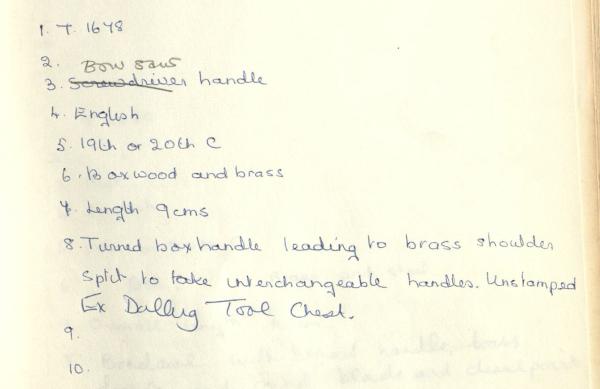 1. T. 1678
2.
Bow saw
3. Screwdriver handle
4. English
5. 19th or 20th C
6. Boxwood and brass
7. Length 9cms
8. Turned box handle leading to brass shoulder
split to take interchangeable handles. Unstamped
Ex Tool Chest.
9.
10.